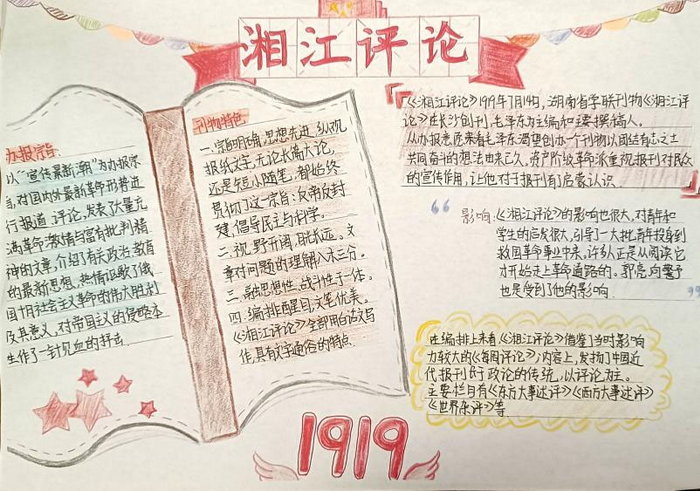 湘江评论
办报宗旨
以"宣传最新思潮"为办报宗
旨,对国内外最新革命形势进
行报道、评论,发表了大量充
满革命激情与富有批判精
神的文章,介绍了有关政治、教育
的最新思想,热情讴歌了俄
国十月社会主义革命的伟大胜利
及其意义,对帝国主义的侵略本
生作了一针见血的抨击
刊物特色
一、宗旨明确,思想先进,纵观
报纸文字,无论长篇大论,
还是短小随笔,都始终
贯彻了这一宗旨:反帝反封
建,倡导民主与科学。
二、视野开阔,眼光远。文
章对问题的理解入木三分。
三、融思想性、战斗性于一体。
四、编排醒目,文笔优美。
《湘江评论》全部用白话文写
作,具有文字通俗的特点
《湘江评论》1919年7月14日,湖南省学联刊物《湘江评
论》在长沙创刊,毛泽东为主编和主要撰稿人。
从办报意愿来看毛泽东渴望创办一个刊物以团结有志之士
共同奋斗的想法由来已久。资产阶级革命派重视报刊对民众
的宣传作用,让他对于报刊有了启蒙认识
影响:《湘江评论》的影响也很大,对青年和
学生的启发很大,引导了大批青年投身到
救国革命事业中来。许多人正是从阅读它
才开始走上革命道路的。郭亮、向警予
也是受到了他的影响
在编排上来看《湘江评论》借鉴了当时影响
力较大的《每周评论》;内容上,发扬了中国近
代报刊政论的传统,以评论为主。
主要栏目有《东方大事述评》《西方大事述评》
《世界杂评》等
1919